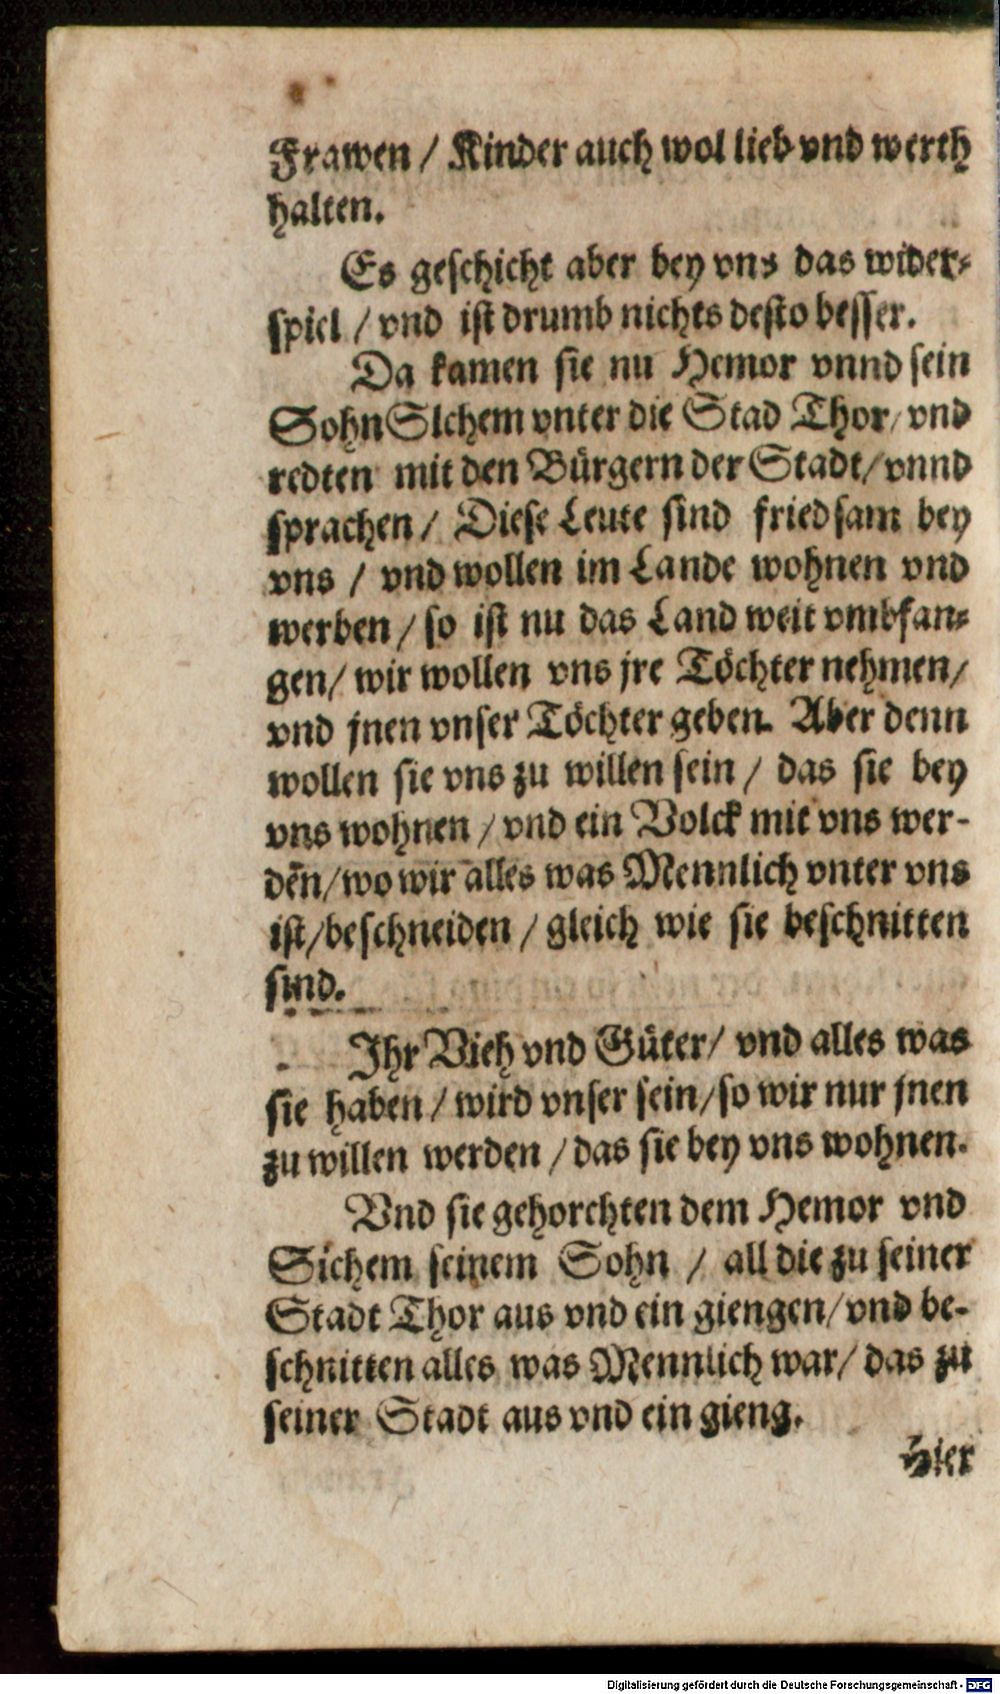 Frawen / Kinder auch wol lieb vnd werth
halten.
Es geschicht aber bey vns das wider-
spiel / vnd ist drumb nichts desto besser.
Da kamen sie nu Hemor vnnd sein
Sohn Slchem vnter die Stad Thor / vnd
redten mit den Bürgern der Stadt / vnnd
sprachen / Diese Leute sind friedsam bey
vns / vnd wollen im Lande wohnen vnd
werben / so ist nu das Land weit vmbfan-
gen / wir wollen vns jre Töchter nehmen /
vnd jnen vnser Töchter geben. Aber denn
wollen sie vns zu willen sein / das sie bey
vns wohnen / vnd ein Volck mit vns wer-
dēn / wo wir alles was Mennlich vnter vns
ist / beschneiden / gleich wie sie beschnitten
sind.
Ihr Vieh vnd Güter / vnd alles was
sie haben / wird vnser sein / so wir nur jnen
zu willen werden / das sie bey vns wohnen.
Vnd sie gehorchten dem Hemor vnd
Sichem seinem Sohn / all die zu seiner
Stadt Thor aus vnd ein giengen / vnd be-
schnitten alles was Mennlich war / das zu
seiner Stadt aus vnd ein gieng.
Hier
Digitalisierung gefördert durch die Deutsche Forschungsgemeinschaft - DFG